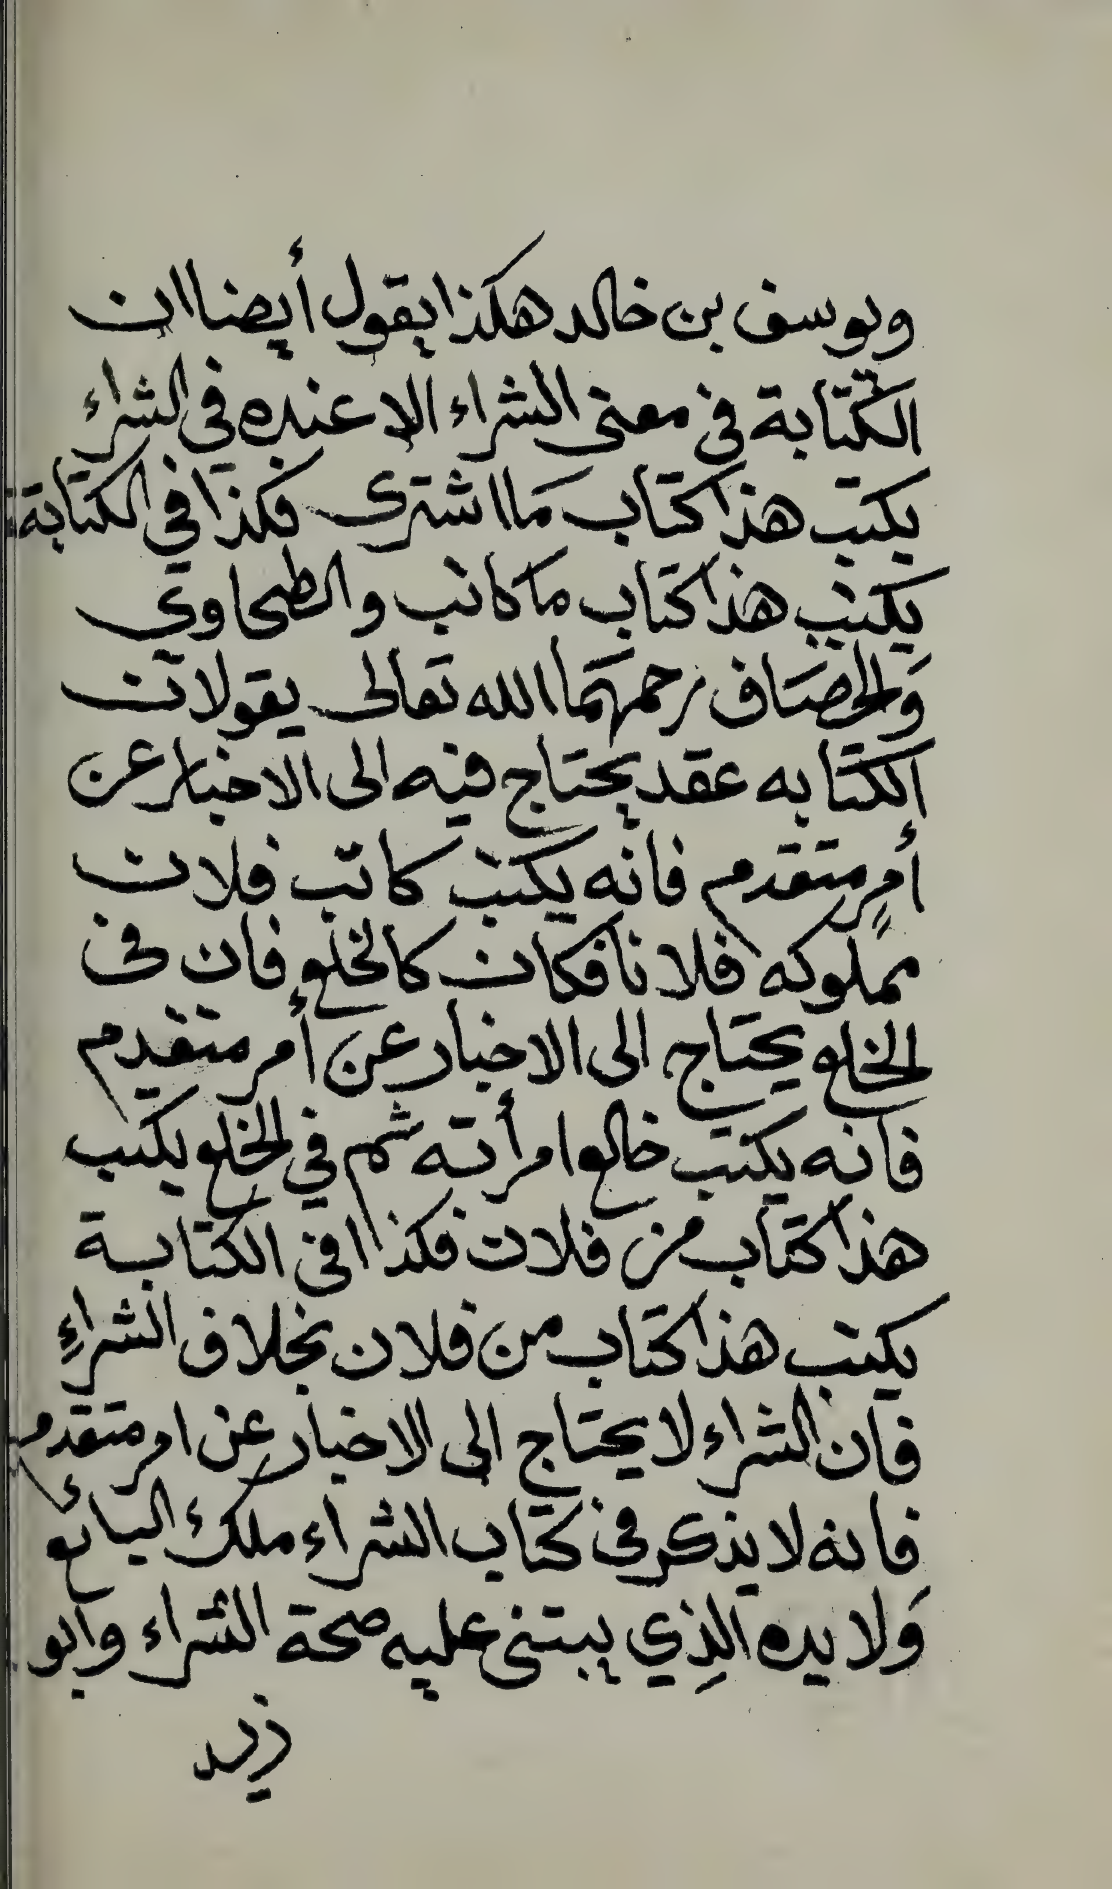 ويوسف بن خالد هكذا يقول أيضا ان
الكتابة في معنى الشراء الا عنده في الشراء
يكتب هذا كتاب مَا اشترى فكذا في الكتابة
يكتب هذا كتاب ما كاتب والطحاوي
وَالخصاف رحمهما الله تعالى يقولان
الكتابه عقد يحتاج فيه الى الاخبار عن
أمرٍ متقدم فانه يكتب كاتب فلان
مملوكه فلانا فكان كالخلع فان في
الخلع يحتاج الى الاخبار عن أمر متقدم
فانه يكتب خالع امرأته ثم في الخلع يكتب
هذا كتاب من فلان فكذا في الكتابة
يكتب هذا كتاب من فلان بخلاف الشراءِ
فان الشراء لا يحتاج الى الاخبار عن امر متقدم
فانه لا يذكر في كتاب الشراء ملك البائع
وَلا يده الذِي يبتنى عليه صحة الشراء وابو
زيد